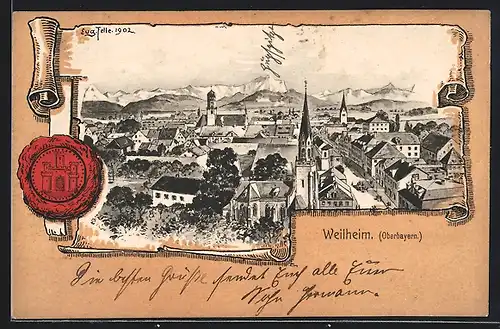 Eug. Felle. 1902
Weilheim. (Oberbayern.)
Die besten Grüße sendet Euch alle Euer
Sohn Hermann.